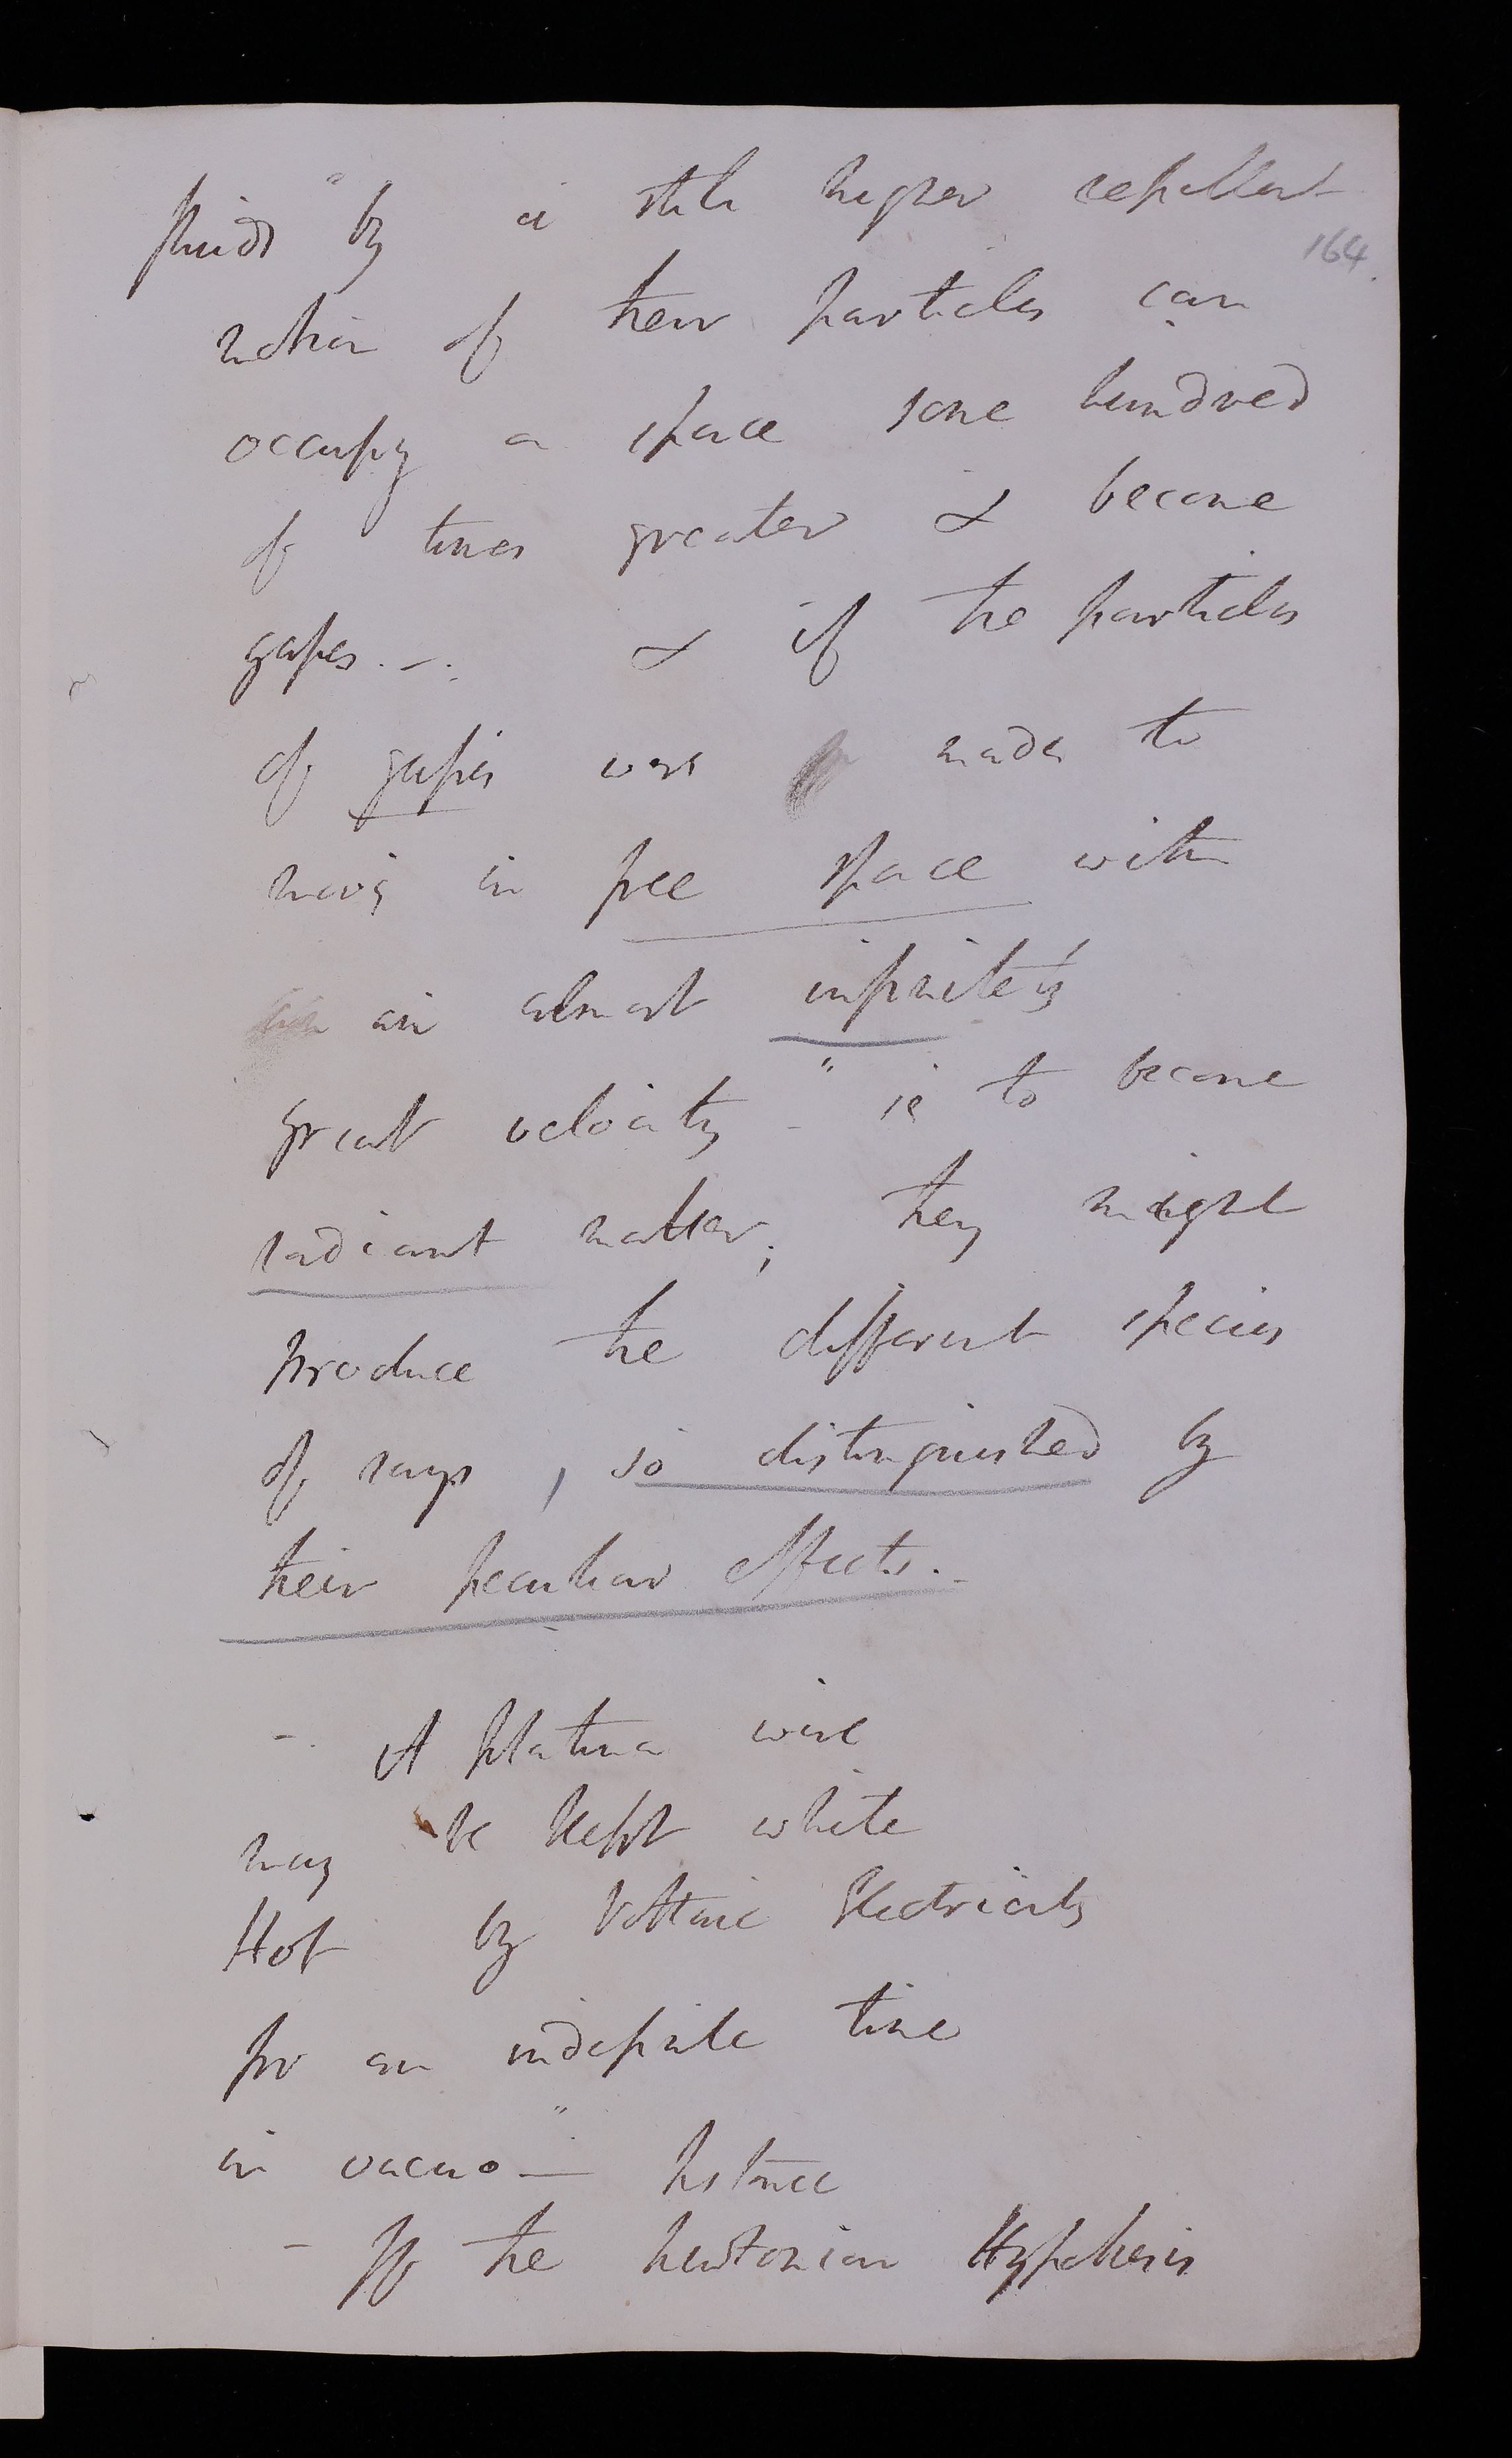 fluids" by a still higher repellent
164
motion of their particles can
occupy a space some hundred
of times greater & become
gases. -. & if the particles
of gases were made to
move in free space with
an almost infinitely
great velocity - " ie to become
radiant matter; they might
produce the different species
of rays, so distinguished by
their peculiar effects. -
- A platina wire
may be kept white
Hot by Voltaic Electricity
for an indefinite time
in vacuo" — Instance
- If the Newtonian Hypothesis